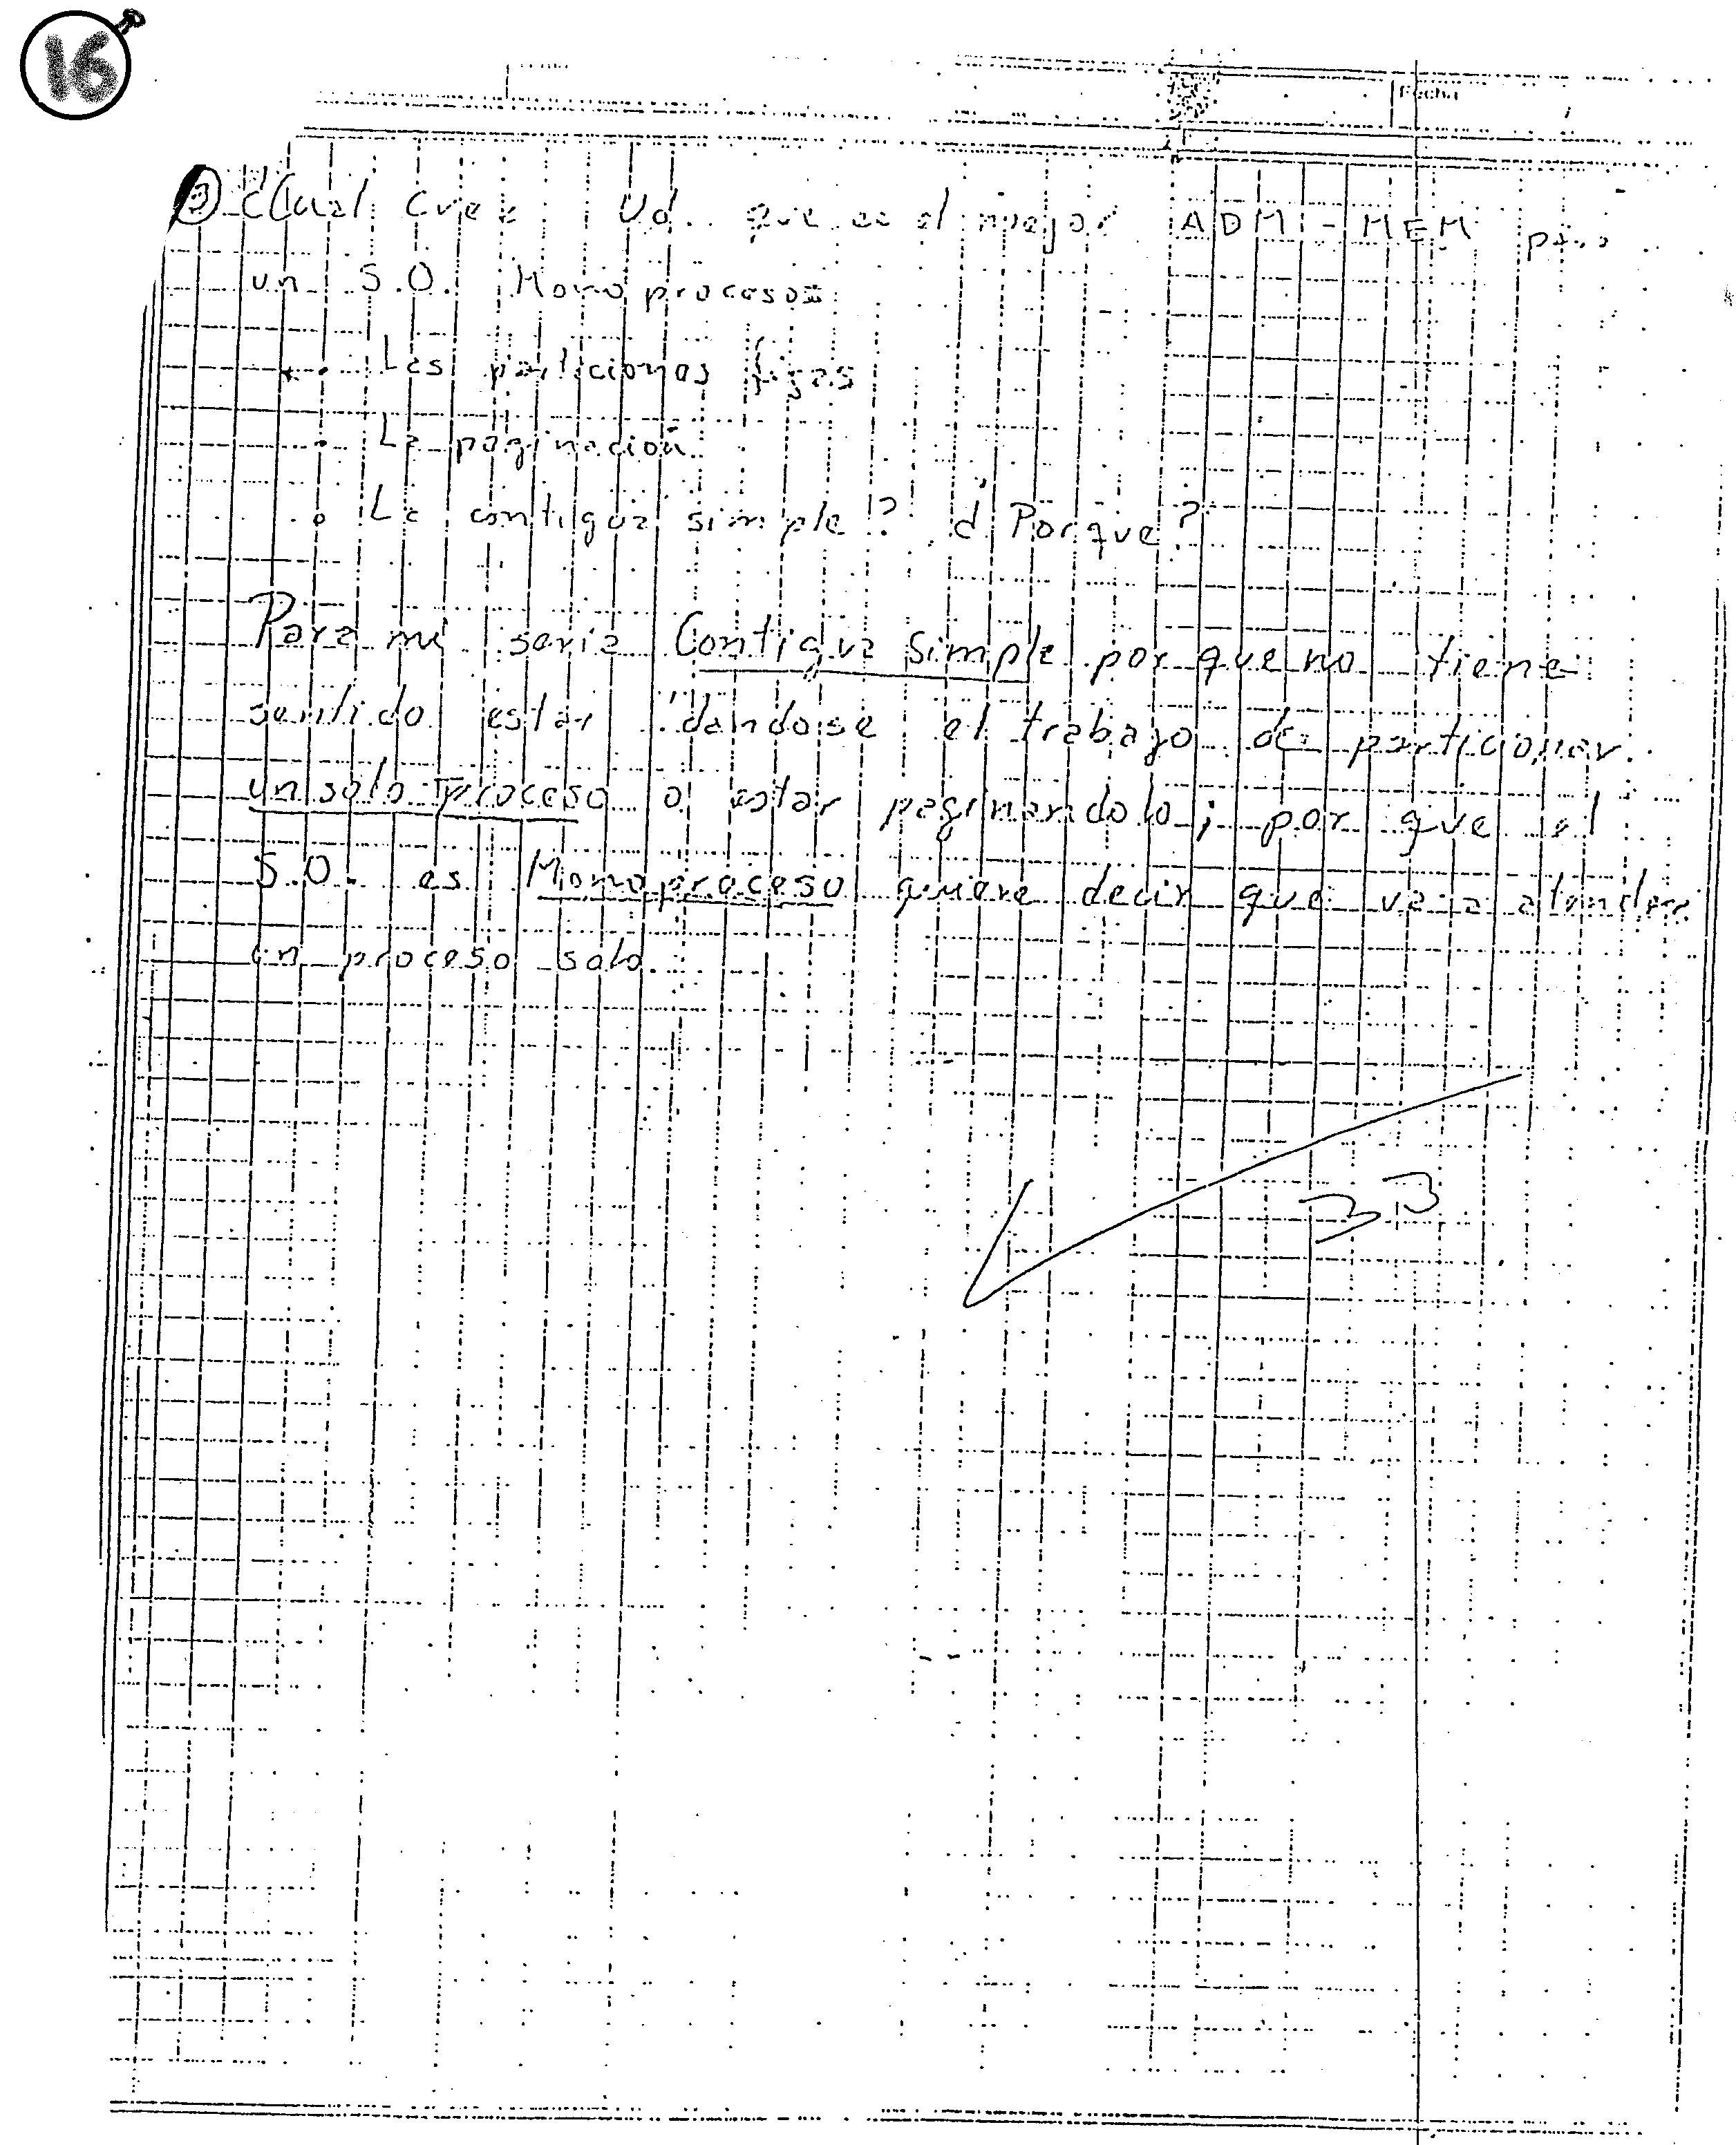 16
Fecha
③ ¿Cual cree Ud. que es el mejor ADM-MEM para
un S.O. Monoproceso
• Las particiones fijas
• La paginación
• La contigua simple? ¿Porque?
Para mi seria Contigua Simple porque no tiene
sentido estar dandose el trabajo de particionar
un solo proceso o estar paginandolo; por que el
S.O. es Monoproceso quiere decir que va a atender
un proceso solo.
33